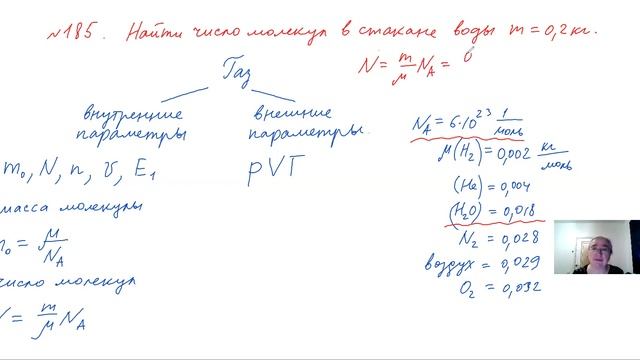 №185. Найти число молекул в стакане воды m = 0,2 кг.
N = m/μ N_A = 0
Газ
внутренние параметры
внешние параметры
m₀, N, n, v, E₁
pVT
масса молекулы
m₀ = μ/N_A
число молекул
N = m/μ N_A
N_A = 6·10²³ 1/моль
μ(H₂) = 0,002 кг/моль
(He) = 0,004
(H₂O) = 0,018
N₂ = 0,028
воздух = 0,029
O₂ = 0,032